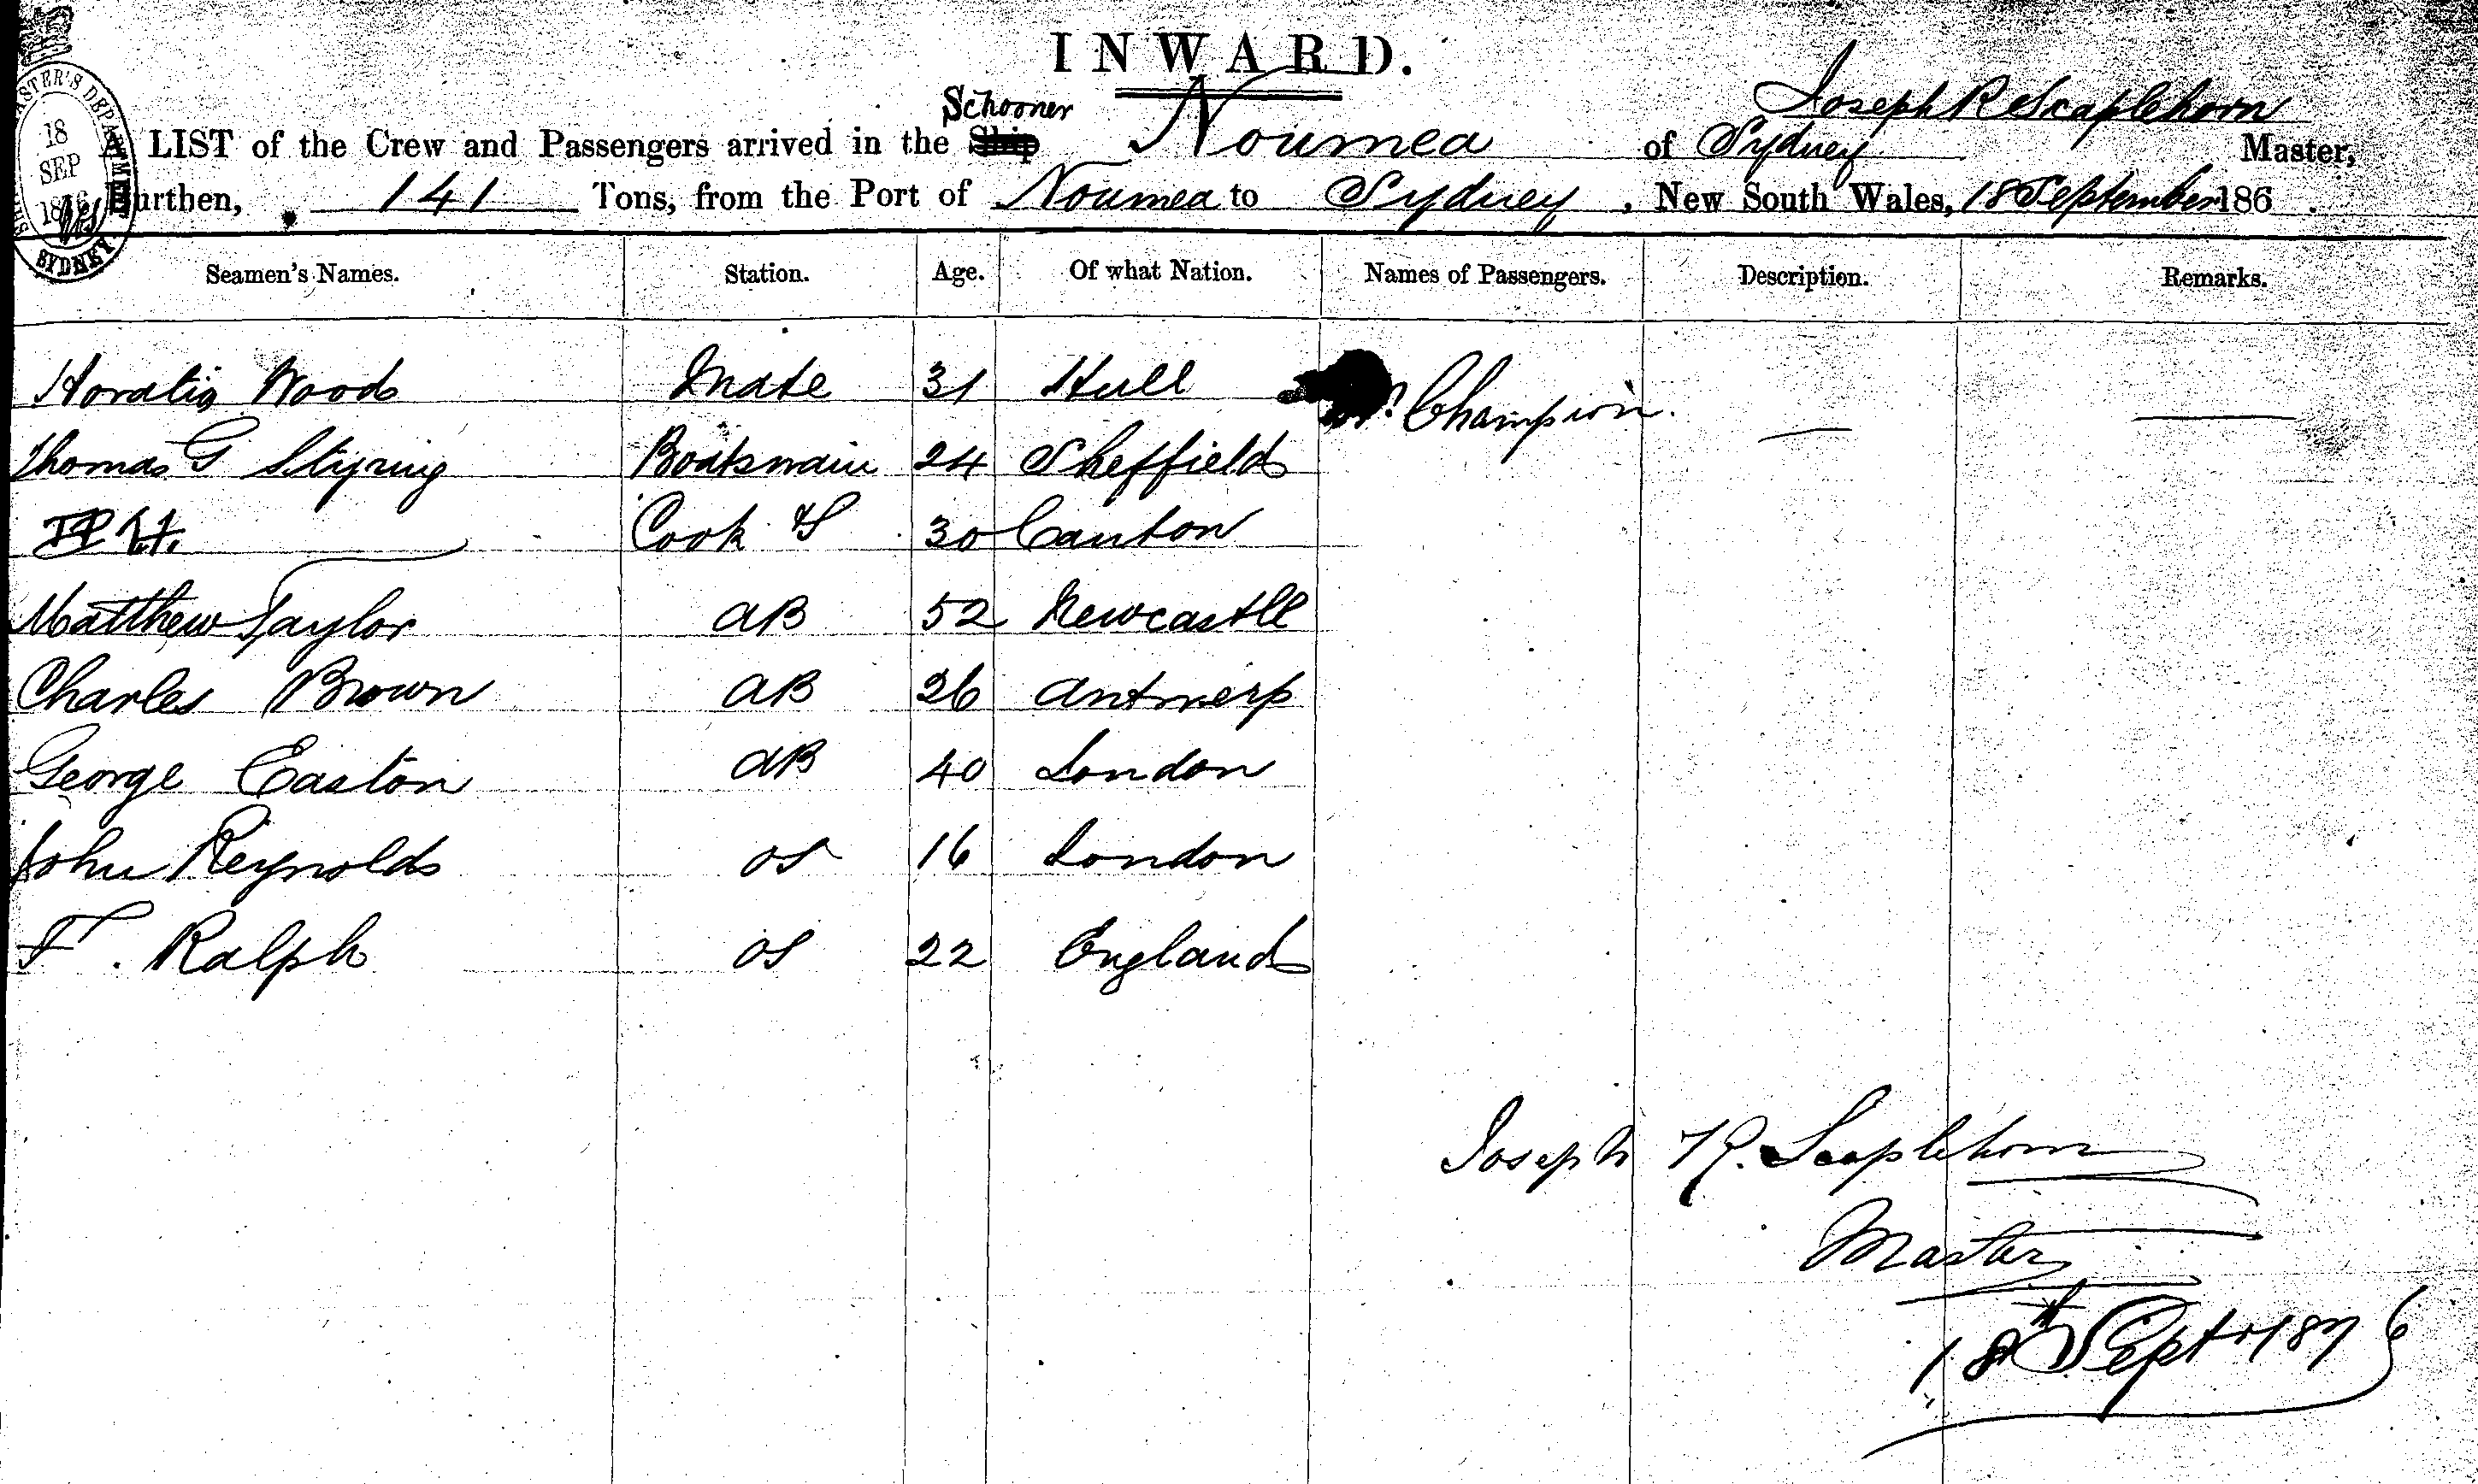 INWARD.
Schooner Joseph R Scaplehorn
A LIST of the Crew and Passengers arrived in the Ship Noumea of Sydney Master,
Burthen, 141 Tons, from the Port of Noumea to Sydney, New South Wales, 18 September 186 .
18
SEP
1876
SYDNEY
Seamen's Names. Station. Age. Of what Nation. Names of Passengers. Description. Remarks.
Horatio Woods Mate 31 Hull Champion.
Thomas G Styring Boatswain 24 Sheffield
Cook & S 30 Canton
Matthew Taylor AB 52 Newcastle
Charles Brown AB 26 Antwerp
George Easton AB 40 London
John Reynolds OS 16 London
F. Ralph OS 22 England
Joseph R. Scaplehorn
Master
18th Septr 1876